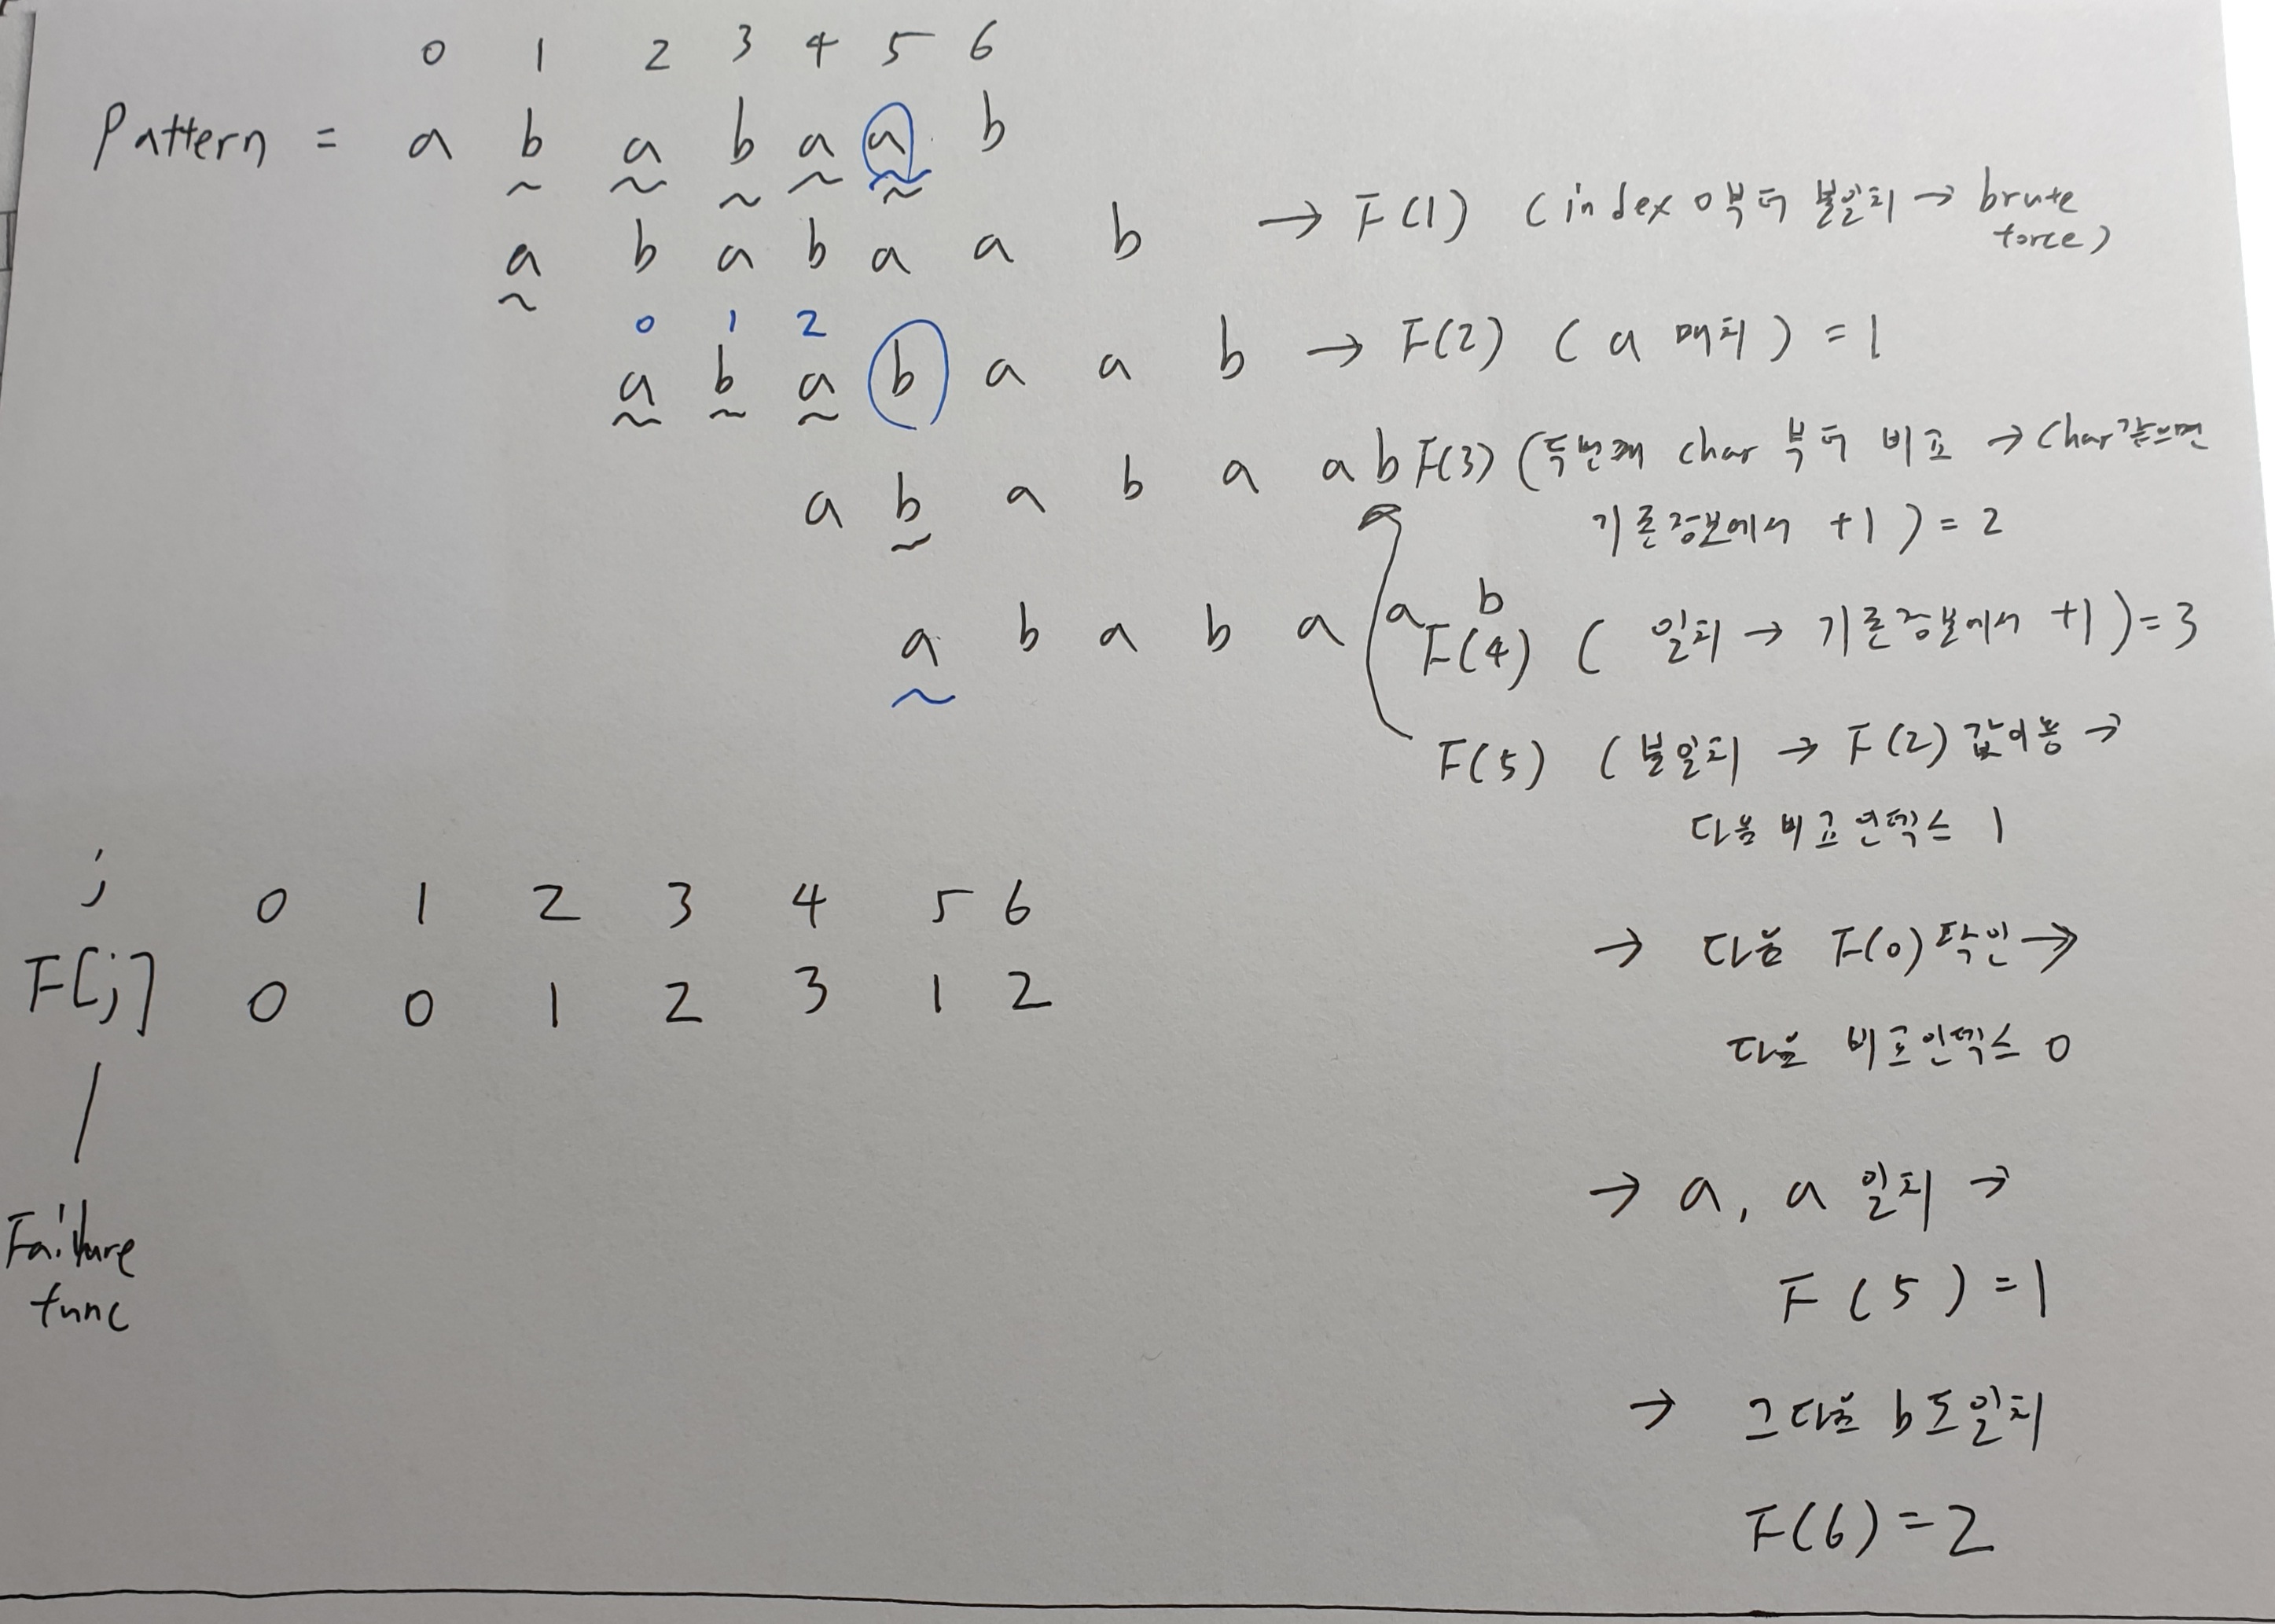 0 1 2 3 4 5 6
Pattern = a b a b a a b
a b a b a a b → F(1) (index 0부터 불일치 → brute
force)
0 1 2
a b a b a a b → F(2) (a 매치) = 1
a b a b a a b F(3) (두번째 char 부터 비교 → char같으면
기존정보에서 +1) = 2
a b a b a a b
F(4) (일치 → 기존정보에서 +1) = 3
F(5) (불일치 → F(2) 값이용 →
다음 비교 인덱스 1
→ 다음 F(0) 확인 →
다음 비교인덱스 0
→ a, a 일치 →
F(5) = 1
→ 그다음 b도일치
F(6) = 2
j 0 1 2 3 4 5 6
F[j] 0 0 1 2 3 1 2
Failure
func